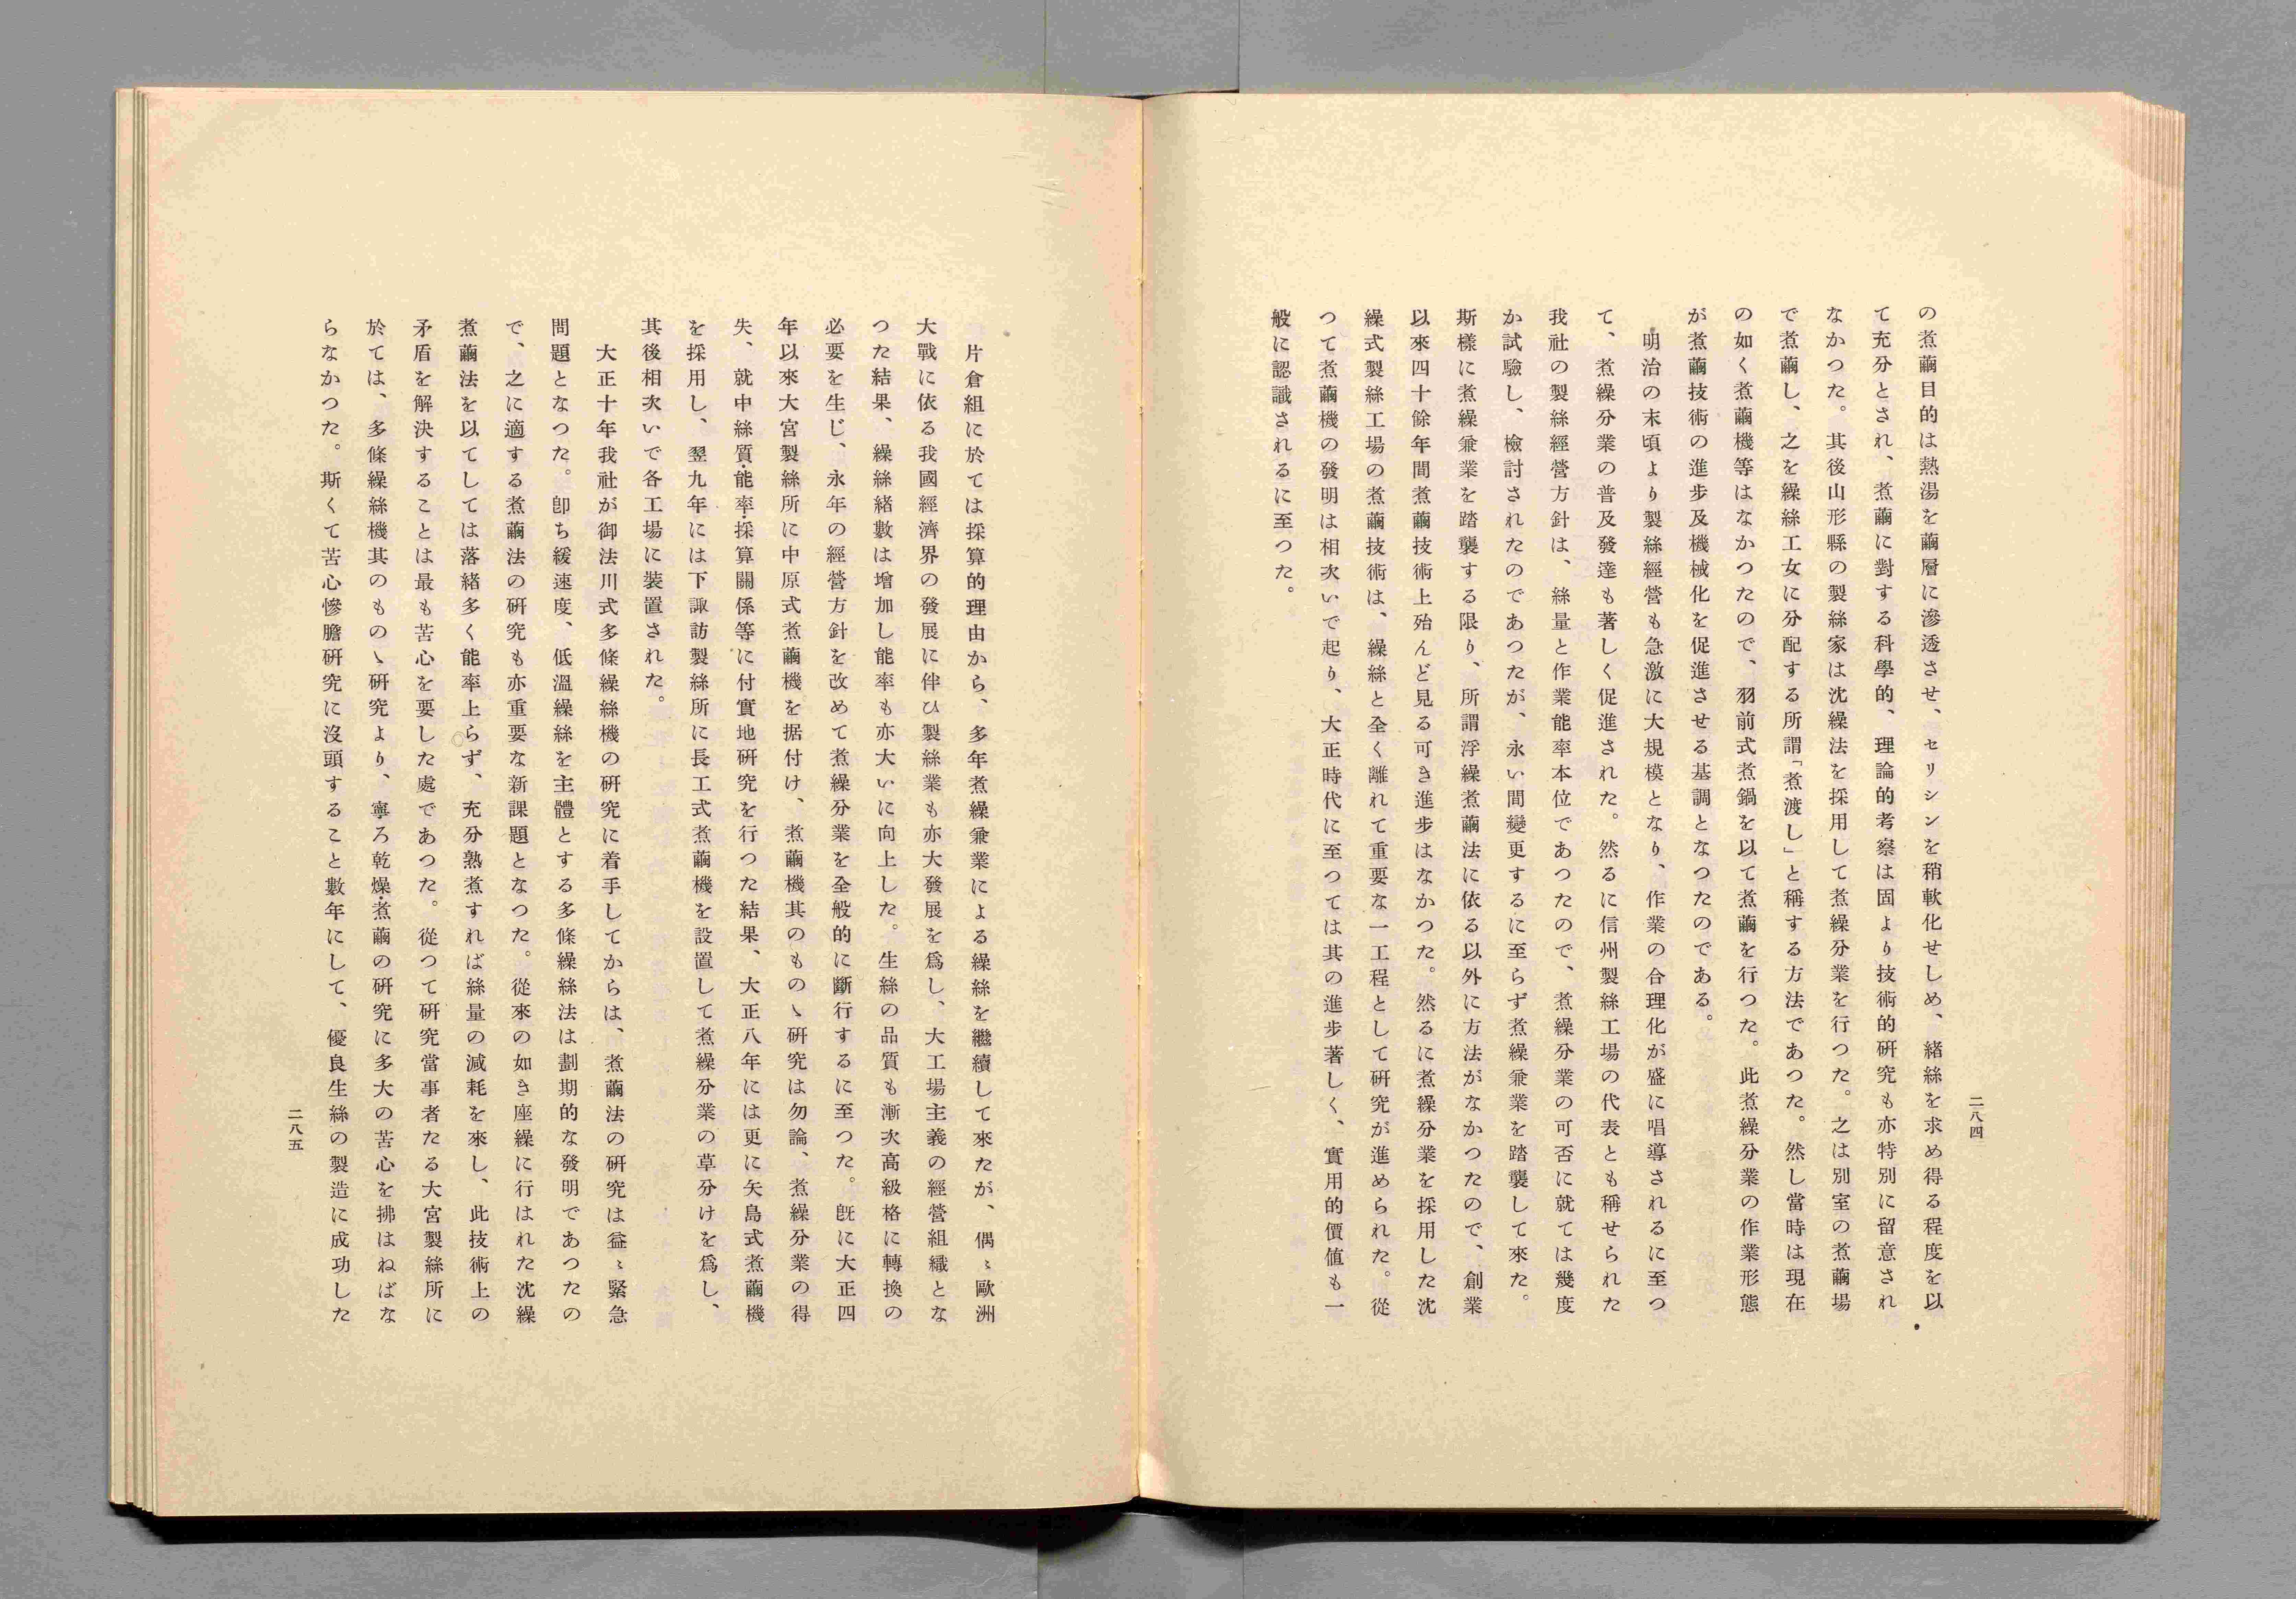 の煮繭目的は熱湯を繭層に滲透させ、セリシンを稍軟化せしめ、緒絲を求め得る程度を以
て充分とされ、煮繭に對する科學的、理論的考察は固より技術的研究も亦特別に留意され
なかつた。其後山形縣の製絲家は沈繰法を採用して煮繰分業を行つた。之は別室の煮繭場
で煮繭し、之を繰絲工女に分配する所謂「煮渡し」と稱する方法であつた。然し當時は現在
の如く煮繭機等はなかつたので、羽前式煮鍋を以て煮繭を行つた。此煮繰分業の作業形態
が煮繭技術の進步及機械化を促進させる基調となつたのである。
明治の末頃より製絲經營も急激に大規模となり、作業の合理化が盛に唱導されるに至つ
て、煮繰分業の普及發達も著しく促進された。然るに信州製絲工場の代表とも稱せられた
我社の製絲經營方針は、絲量と作業能率本位であつたので、煮繰分業の可否に就ては幾度
か試驗し、檢討されたのであつたが、永い間變更するに至らず煮繰兼業を踏襲して來た。
斯樣に煮繰兼業を踏襲する限り、所謂浮繰煮繭法に依る以外に方法がなかつたので、創業
以來四十餘年間煮繭技術上殆んど見る可き進步はなかつた。然るに煮繰分業を採用した沈
繰式製絲工場の煮繭技術は、繰絲と全く離れて重要な一工程として研究が進められた。從
つて煮繭機の發明は相次いで起り、大正時代に至つては其の進步著しく、實用的價値も一
般に認識されるに至つた。
二八四
片倉組に於ては採算的理由から、多年煮繰兼業による繰絲を繼續して來たが、偶〻歐洲
大戰に依る我國經濟界の發展に伴ひ製絲業も亦大發展を爲し、大工場主義の經營組織とな
つた結果、繰絲緒數は增加し能率も亦大いに向上した。生絲の品質も漸次高級格に轉換の
必要を生じ、永年の經營方針を改めて煮繰分業を全般的に斷行するに至つた。旣に大正四
年以來大宮製絲所に中原式煮繭機を据付け、煮繭機其のものゝ研究は勿論、煮繰分業の得
失、就中絲質・能率・採算關係等に付實地研究を行つた結果、大正八年には更に矢島式煮繭機
を採用し、翌九年には下諏訪製絲所に長工式煮繭機を設置して煮繰分業の草分けを爲し、
其後相次いで各工場に裝置された。
大正十年我社が御法川式多條繰絲機の研究に着手してからは、煮繭法の研究は益〻緊急
問題となつた。卽ち緩速度、低溫繰絲を主體とする多條繰絲法は劃期的な發明であつたの
で、之に適する煮繭法の研究も亦重要な新課題となつた。從來の如き座繰に行はれた沈繰
煮繭法を以てしては落緖多く能率上らず、充分熟煮すれば絲量の減耗を來し、此技術上の
矛盾を解決することは最も苦心を要した處であつた。從つて研究當事者たる大宮製絲所に
於ては、多條繰絲機其のものゝ研究より、寧ろ乾燥・煮繭の研究に多大の苦心を拂はねばな
らなかつた。斯くて苦心慘膽研究に沒頭すること數年にして、優良生絲の製造に成功した
二八五